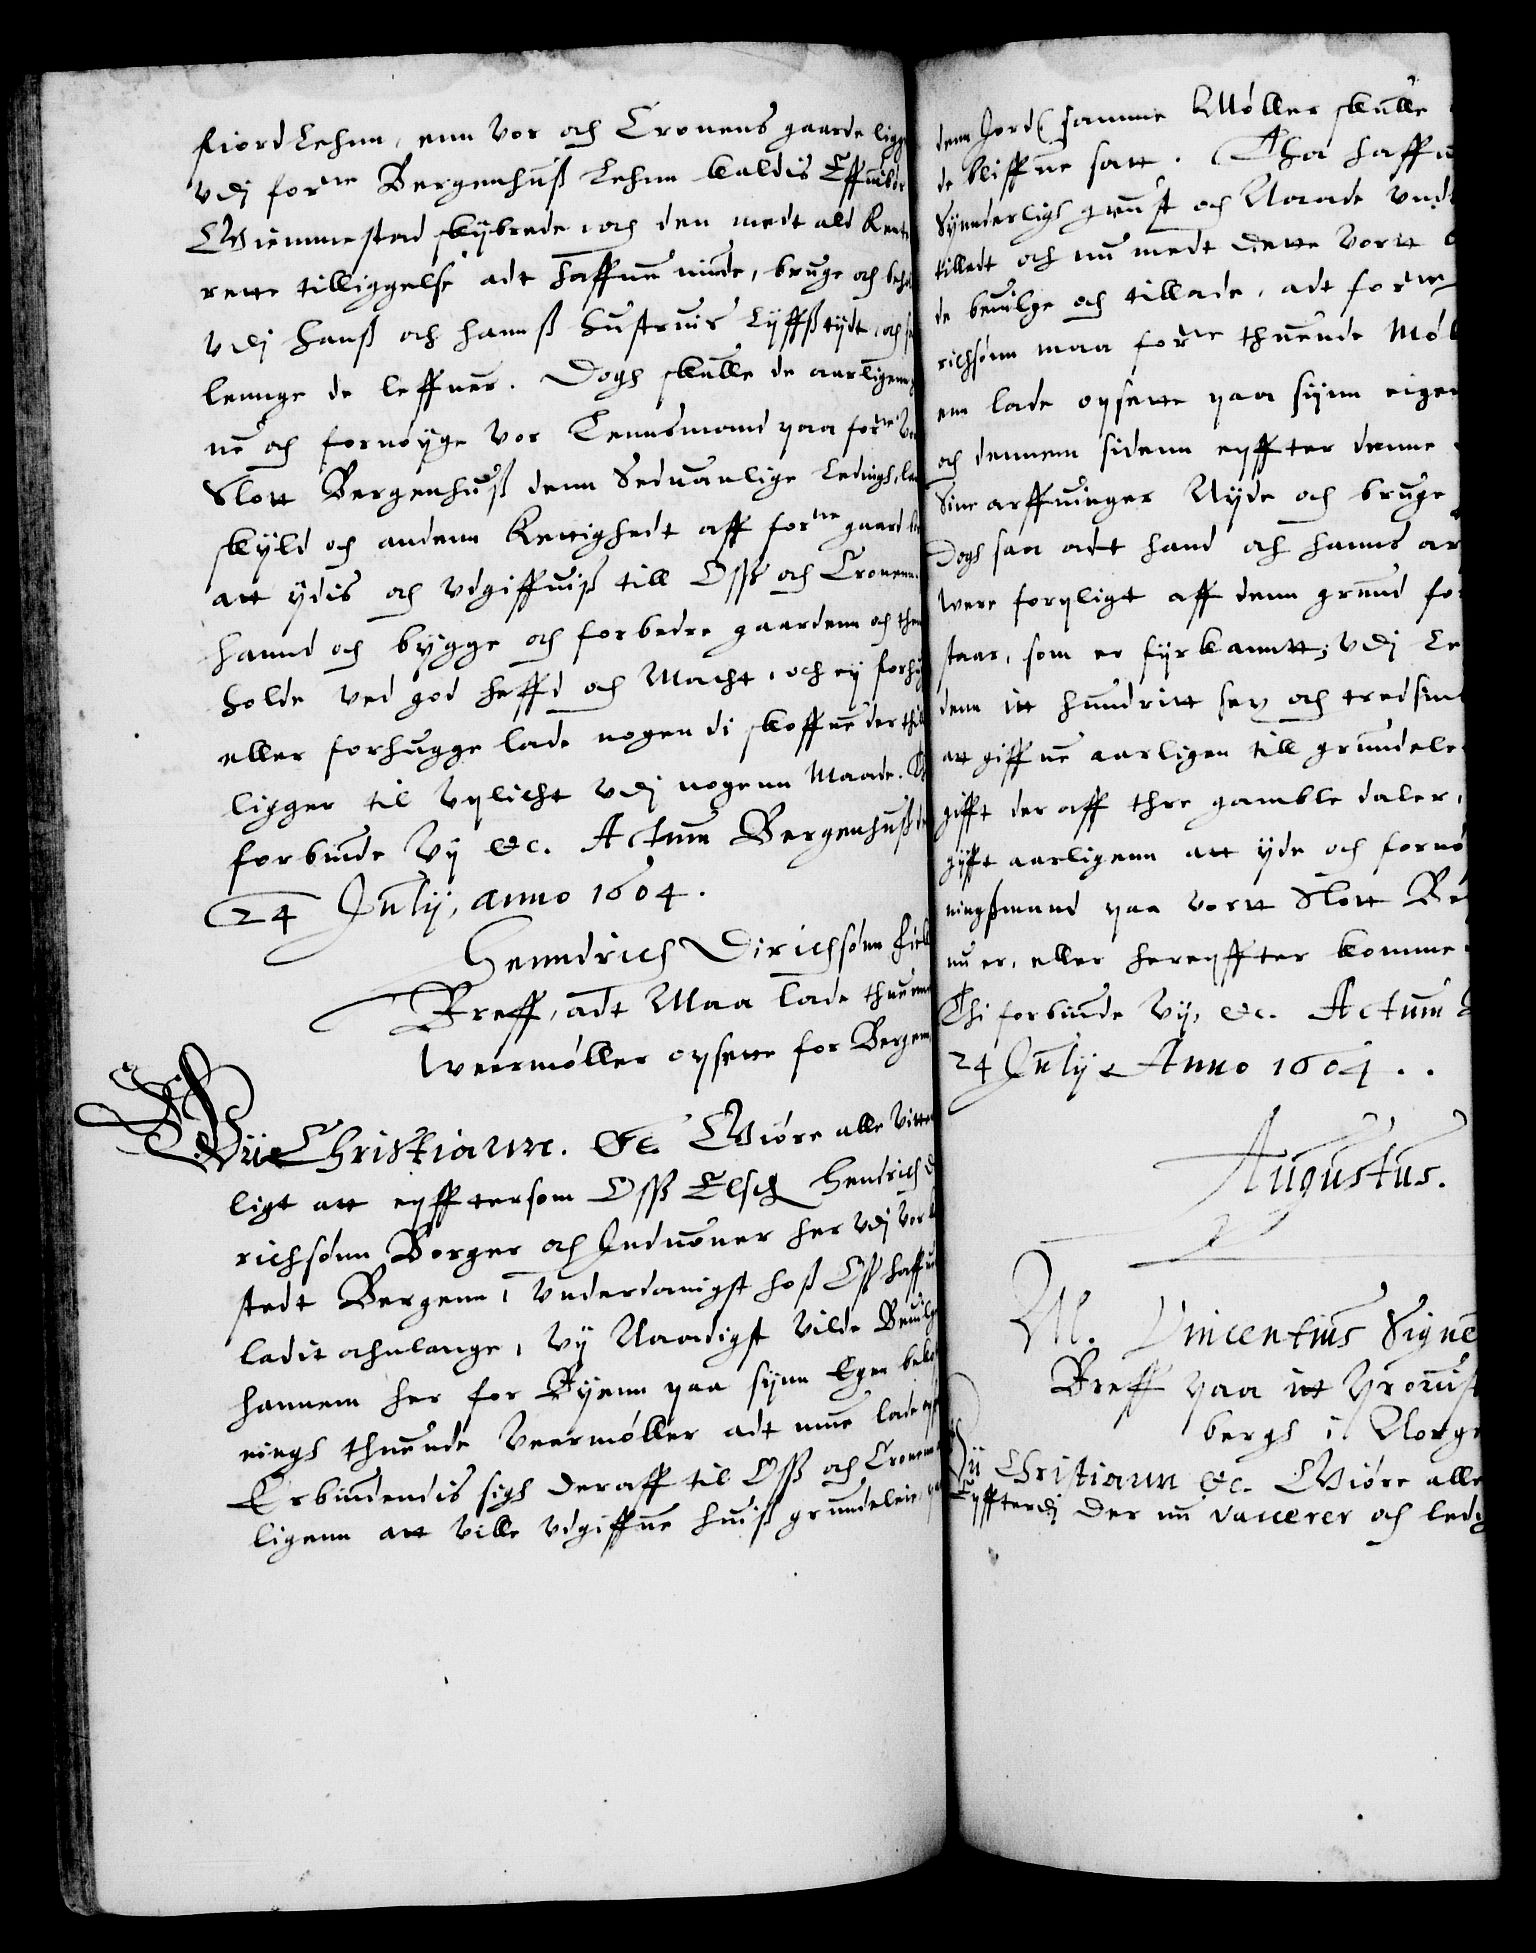 fiord Lehnn, enn vor och Cronens gaarde ligg
vdj for^ne Bergenhuß Lehnn kaldis
Giemmestad skybrede, och den medt ald Rente
rette tilliggelse adt haffue niude, bruge och beho
vdj hanß och hannß hustruis Lyffßtydt, och
lennge de leffuer. Dogh skulle de aarligenn
ne och fornøyge vor Lennsmand paa for^ne
Slott Bergenhuß denn Seduanlige Ledings,
skyld och andenn Rettighedt aff for^ne gaard
att ydis och vdgiffuiß till Oß och Cronenn.
hannd och bygge och forbedre gaardenn och
holde ved god heffd och Macht, och ey forhu
eller forhugge lade nogen di skoffue der thil
ligger til vplicht vdj nogenn Maade.
forbiude Vy &c. Actum Bergenhuß
24 July, anno 1604.
Henndrich Dirichsønn fick
Breff, adt Maa lade thuende
Veermøller opsette for Bergenn
Vii Christiann. &c. Giøre alle vitter
ligt att epfftersom Oß Elsch Hendrich
richsønn Borger och Induoner her vdj vor
stedt Bergenn, vnderdanigst hoß Oß haffue
ladit ahnlange, Vy Naadigst vilde Beuilge
hannem her for Byenn paa synn Egen beko
nings thuende Veermøller adt mue lade
Erbiudendis sigh deraff til Oß och Cronenn
ligenn att ville vdgiffue huiß grundeleie,
denn Jord samme Møller skulle
de bliffue satt. Tha haffue
Synderligh gunst och Naade vndt
tilladt och nu medt dette vortt
de beuilge och tillade, adt for^ne
richsønn maa for^ne thuende Møl
em lade opsette paa synn eigen
och dennem sidenn epffter denne
Sine arffuinger Nyde och bruge
Dogh saa adt hand och hanns ar
were forpligt aff denn grund fo
staar, som er fyrkanntt; vdj Le
denn itt hundritt sex och tredsin
att giffue aarligen till grundele
gifft der aff thre gamble daler,
gyfft aarligenn att yde och fornø
ningßmand paa vortt Slott Be
nu er, eller herepffter komme
Thi forbiude Vy, &c. Actum
24 July Anno 1604..
Augustus.
M. Vincentius Signe
Breff paa itt Prouist
bergh i Norge
Vii Christiann &c. Giøre alle
Epffterdj Der nu vacerer och ledig